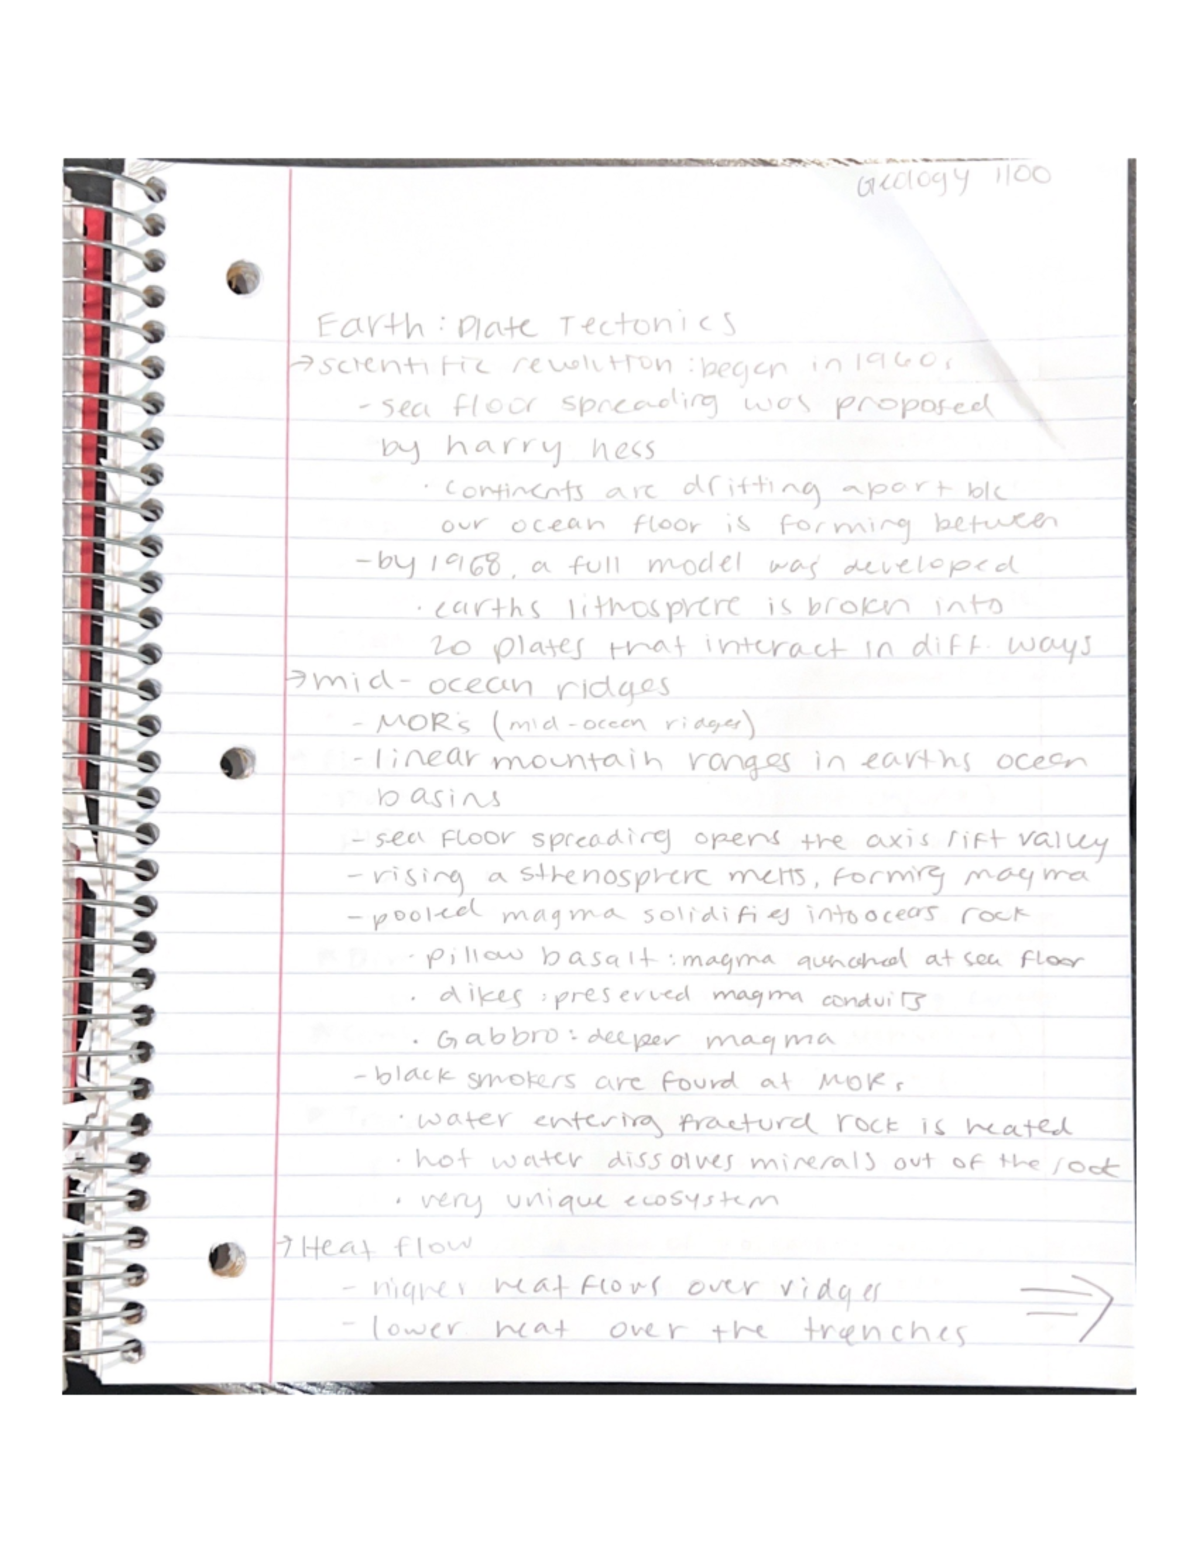 Geology 1100
Earth: Plate Tectonics
→ scientific revolution: began in 1960s
- sea floor spreading was proposed
by harry hess
· continents are drifting apart b/c
our ocean floor is forming between
- by 1968, a full model was developed
· earths lithosphere is broken into
20 plates that interact in diff. ways
→ mid-ocean ridges
- MOR's (mid-ocean ridges)
- linear mountain ranges in earths ocean
basins
- sea floor spreading opens the axis rift valley
- rising asthenosphere melts, forming magma
- pooled magma solidifies into rock
· pillow basalt: magma at sea floor
· dikes: preserved magma conduits
· Gabbro: deeper magma
- black smokers are found at MORs
· water entering fracturd rock is heated
· hot water dissolves minerals out of the rock
· very unique ecosystem
→ Heat flow
- higher heat flows over ridges
- lower heat over the trenches